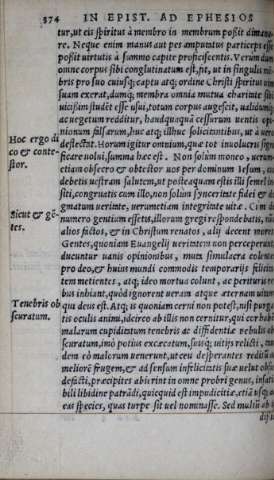 374 IN EPIST. AD EPHESIOS
tur, ut eis spiritus à membro in membrum possit dimana-
re. Neque enim manus aut pes amputatus particeps esse
possit uirtutis à summo capite proficiscentis. Verum dum
omne corpus sibi conglutinatum est, fit, ut in singulis mē-
bris pro suo cuiusq; captu atq; ordine Christi spiritus uim
suam exerat, dumq; membra omnia mutua charitate sibi
uicissim student esse usui, totum corpus augescit, ualidumq;
ac uegetum redditur, haudquaquā cessurum uentis opi-
nionum falsarum, huc atq; illuc solicitantibus, ut à uero
deflectāt. Horum igitur omnium, quæ tot inuolucris signi
ficare uolui, summa hæc est. Non solum moneo, uerum
etiam obsecro & obtestor uos per dominum Iesum, cui
debetis uestram salutem, ut posteaquam estis illi semel in
siti, congruatis cum illo, non solùm synceritate fidei & do
gmatum ueritate, uerumetiam integritate uitæ. Cùm de
numero gentium essetis, illorum gregi respondebatis, nūc
alios factos, & in Christum renatos, alij decent mores.
Gentes, quoniam Euangelij ueritatem non perceperunt,
ducuntur uanis opinionibus, muta simulacra colentes
pro deo, & huius mundi commodis temporarijs felicita-
tem metientes, atq; ideo mortua colunt, ac perituris re-
bus inhiant, quòd ignorent ueram atque æternam uitam
quæ deus est. Atq; is quoniam cerni non potest, nisi purga
tis oculis animi, idcirco ab illis non cernitur, qui cor habēt
malarum cupiditatum tenebris ac diffidentiæ nebulis ob
scuratum, imò potius excæcatum, suisq; uitijs relicti, tan
dem eò malorum uenerunt, ut ceu desperantes reditum ad
meliorē frugem, & ad sensum infelicitatis suæ uelut obsur
defacti, præcipites abierint in omne probri genus, insatia
bili libidine patrādi, quicquid est impudicitiæ, etiā usq; ad
eas species, quas turpe sit uel nominasse. Sed multū ab
Hoc ergo di
co & conte-
stor.
Sicut & gē-
tes.
Tenebris ob
scuratum.